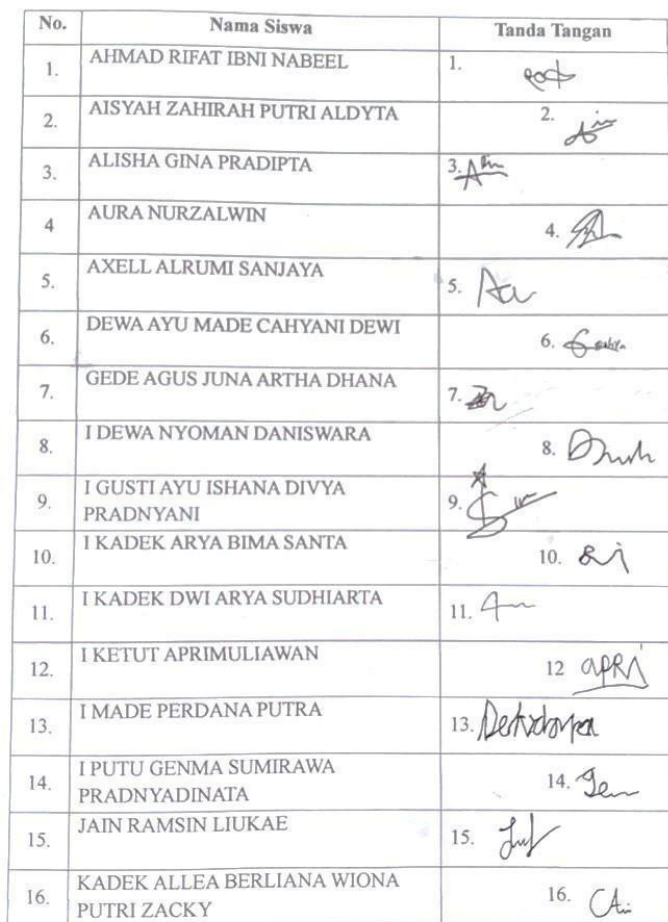 No. Nama Siswa Tanda Tangan
1. AHMAD RIFAT IBNI NABEEL 1.
2. AISYAH ZAHIRAH PUTRI ALDYTA 2.
3. ALISHA GINA PRADIPTA 3.
4 AURA NURZALWIN 4.
5. AXELL ALRUMI SANJAYA 5.
6. DEWA AYU MADE CAHYANI DEWI 6.
7. GEDE AGUS JUNA ARTHA DHANA 7.
8. I DEWA NYOMAN DANISWARA 8.
9. I GUSTI AYU ISHANA DIVYA
PRADNYANI 9.
10. I KADEK ARYA BIMA SANTA 10.
11. I KADEK DWI ARYA SUDHIARTA 11.
12. I KETUT APRIMULIAWAN 12 APRI
13. I MADE PERDANA PUTRA 13.
14. I PUTU GENMA SUMIRAWA
PRADNYADINATA 14.
15. JAIN RAMSIN LIUKAE 15.
16. KADEK ALLEA BERLIANA WIONA
PUTRI ZACKY 16.